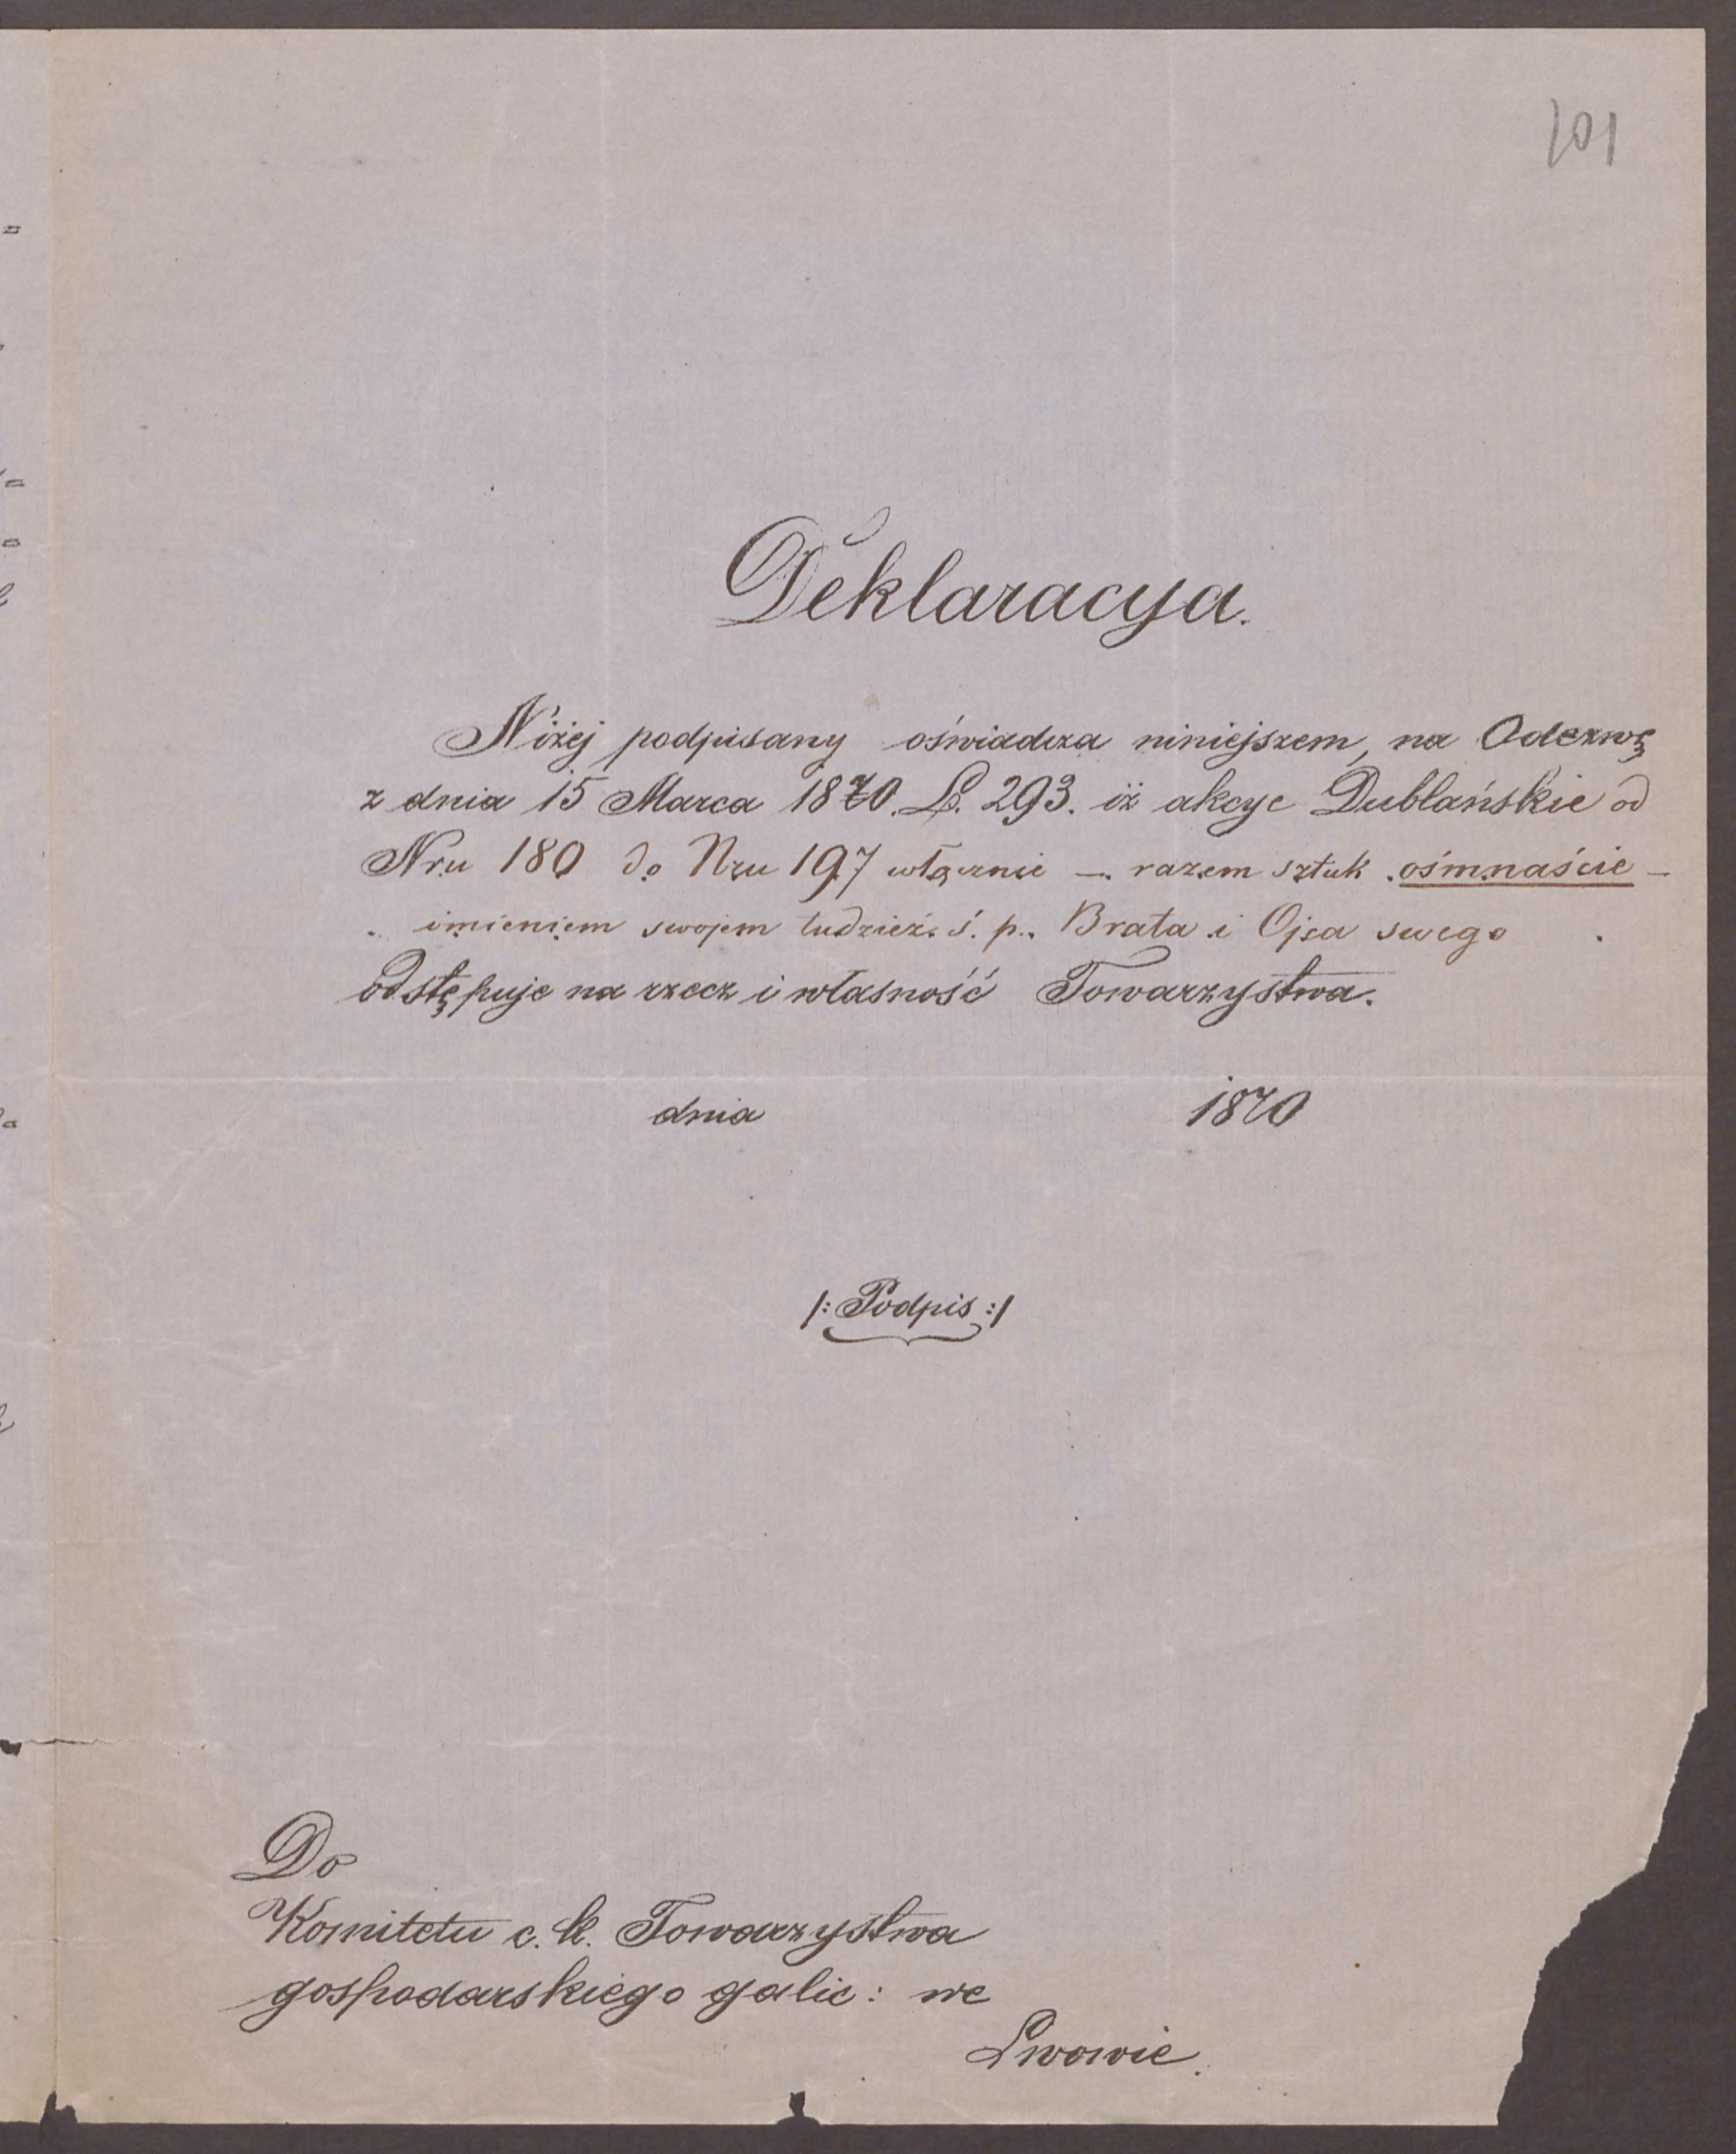 101
Deklaracya.
Niżej podpisany oświadcza niniejszem, na Odezwę
z dnia 15 Marca 1870. L. 293. iż akcye Dublańskie od
Nru 180 do Nru 197 włącznie — razem sztuk ośmnaście —
imieniem swojem tudzież ś. p. Brata i Ojca swego
odstępuje na rzecz i własność Towarzystwa.
dnia 1870
/: Podpis :/
Do
Komitetu c. k. Towarzystwa
gospodarskiego galic: we
Lwowie.